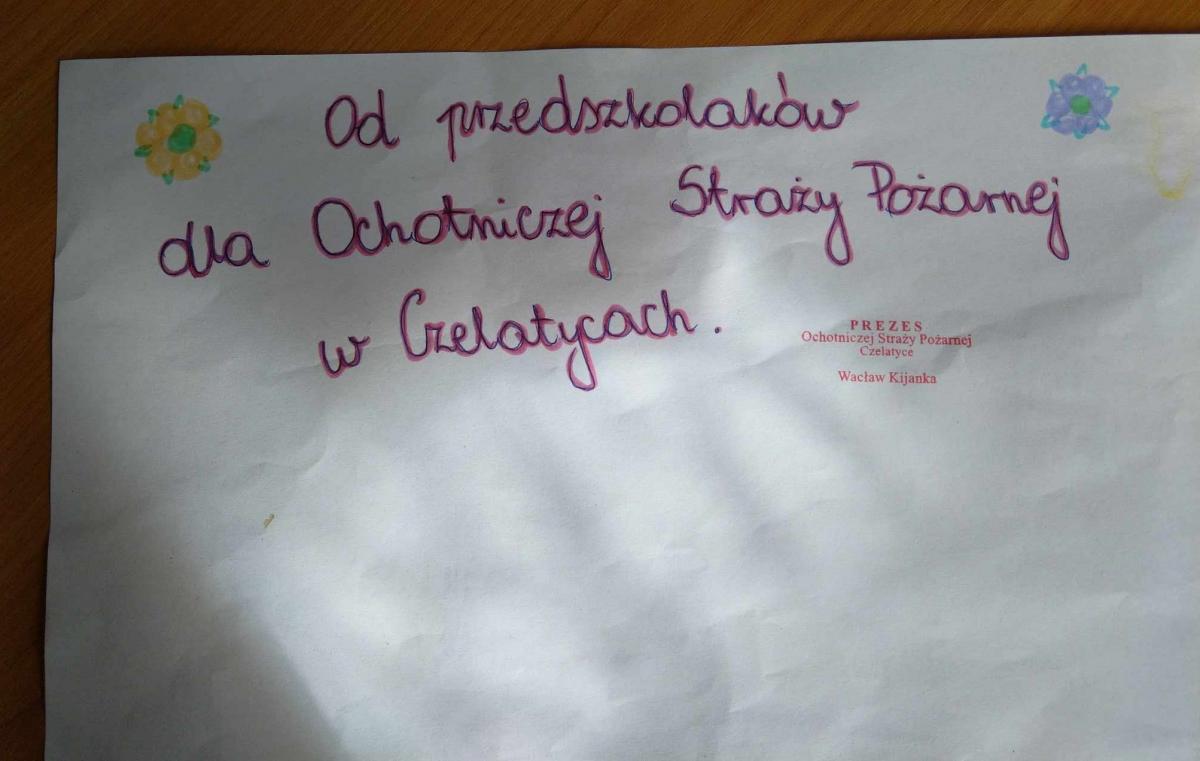 Od przedszkolaków
dla Ochotniczej Straży Pożarnej
w Czelatycach.
PREZES
Ochotniczej Straży Pożarnej
Czelatyce
Wacław Kijanka